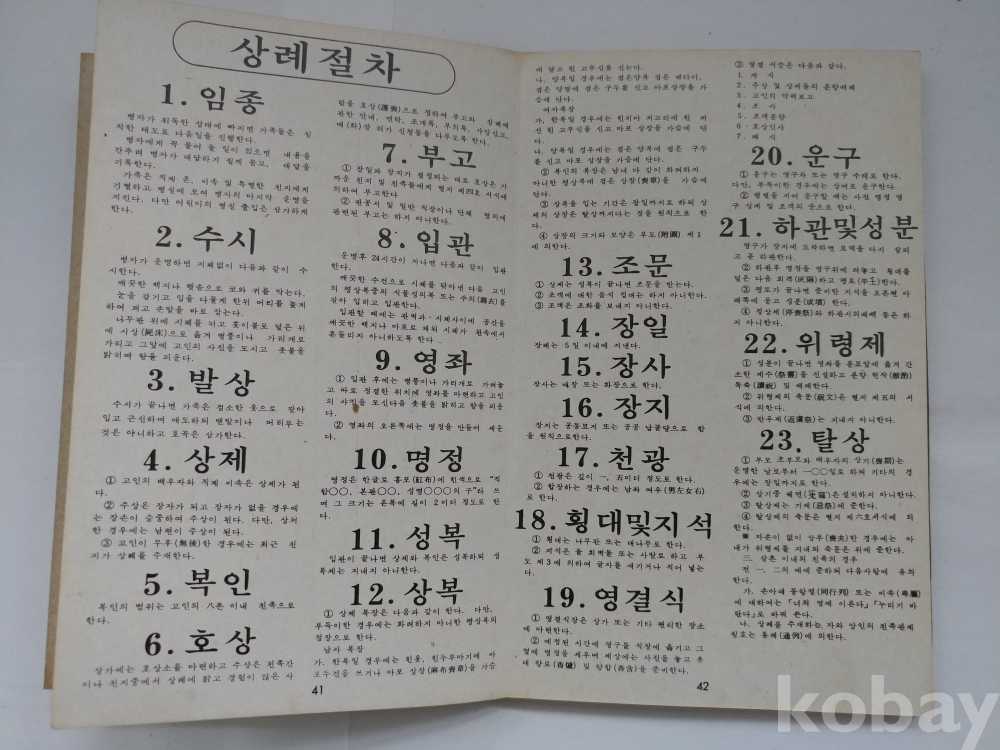 상례절차
1. 임종
병자가 위독한 상태에 빠지면 가족들은 침
착한 태도로 다음일을 진행한다.
병자에게 꼭 물어 둘 일이 있으면 내용을
간추려 병자가 대답하기 쉽게 묻고, 대답을
기록한다.
가족은 직계 존, 비속 및 특별한 친지에게
기별하고 병실에 모여 병자의 마지막 운명을
지킨다. 다만 어린이의 병실 출입은 삼가하게
한다.
2. 수시
병자가 운명하면 지체없이 다음과 같이 수
시한다.
깨끗한 백지나 햄솜으로 코와 귀를 막는다.
눈을 감기고 입을 다물게 한뒤 머리를 높게
하여 괴고 손발을 바로 잡는다.
나무판 위에 시체를 뉘고 홋이불로 덮은 뒤
에 시상(屍牀)으로 옮겨 병풍이나 가리개로
가리고 그앞에 고인의 사진을 모시고 촛불을
밝히며 향을 피운다.
3. 발상
수시가 끝나면 가족은 검소한 옷으로 갈아
입고 근신하며 애도하되 맨발이나 머리푸는
것은 아니하고 호곡은 삼가한다.
4. 상제
① 고인의 배우자와 직계 비속은 상제가 된
다.
② 주상은 장자가 되고 장자가 없을 경우에
는 장손이 승중하여 주상이 된다. 다만, 상처
한 경우에는 남편이 주상이 된다.
③ 고인이 무후(無後)한 경우에는 최근 친
지가 상례를 주재한다.
5. 복인
복인의 범위는 고인의 八촌 이내 친족으로
한다.
6. 호상
상가에는 호상소를 마련하고 주상은 친족간
이나 친지중에서 상례에 밝고 경험이 많은 사
람을 호상(護喪)으로 정하여 부고와 장례에
관한 안내, 연락, 조객록, 부의록, 사망신고,
매(화)장 허가 신청등을 다루도록 한다.
7. 부고
① 장일과 장지가 결정되는 대로 호상은 가
까운 친지 및 친족들에게 별지 제四호 서식에
의하여 부고한다.
② 관공서 및 일반 직장이나 단체 명의에
관련된 부고는 하지 아니한다.
8. 입관
운명후 24시간이 지나면 다음과 같이 입관
한다.
깨끗한 수건으로 시체를 닦아낸 다음 고인
의 평상복중의 식물성의복 또는 수의(壽衣)를
갈아 입히고 입관한다.
입관할 때에는 관벽과 시체사이에 공간을
깨끗한 백지나 마포로 채워 시체가 관속에서
흔들리지 아니하도록 한다.
9. 영좌
① 입관 후에는 병풍이나 가리개로 가려놓
고 따로 정결한 위치에 영좌를 마련하고 고인
의 사진을 모신다음 촛불을 밝히고 향을 피운
다.
② 영좌의 오른쪽에는 명정을 만들어 세운
다.
10. 명정
명정은 한글로 홍포(紅布)에 흰색으로 "직
함○○, 본관○○, 성명○○○의 구"라 쓰
며 그 크기는 온폭에 길이 2미터 정도로 한
다.
11. 성복
입관이 끝나면 상제와 복인은 성복하되 성
복제는 지내지 아니한다.
12. 상복
① 상제 복장은 다음과 같이 한다. 다만,
부득이한 경우에는 화려하지 아니한 평상복의
정장으로 한다.
남자 복장
가. 한복일 경우에는 흰옷, 흰두루마기에 마
포두건을 쓰거나 마포 상장(麻布喪章)을 가슴
41
에 달고 흰 고무신을 신는다.
나. 양복일 경우에는 검은양복 검은 넥타이,
검은 양말에 검은 구두를 신고 마포상장을 가
슴에 단다.
여자복장
가. 한복일 경우에는 흰치마 저고리에 흰 버
선 흰 고무신을 신고 마포 상장을 가슴에 단
다.
나. 양복일 경우에는 검은 양복에 검은 구두
를 신고 마포 상장을 가슴에 단다.
② 복인의 복장은 남녀 다 같이 화려하지
아니한 평상복에 검은 상장(喪章)을 가슴에
단다.
③ 상복을 입는 기간은 장일까지로 하되 상
제의 상장은 탈상까지다는 것을 원칙으로 한
다.
④ 상장의 크기와 모양은 부도(附圖) 제1
에 의한다.
13. 조문
① 상제는 성복이 끝나면 조문을 받는다.
② 조객에 대한 음식 접대는 하지 아니한다.
③ 조객은 조화를 보내지 아니한다.
14. 장일
장례는 5일 이내에 지낸다.
15. 장사
장사는 매장 또는 화장으로 한다.
16. 장지
장지는 공동묘지 또는 공공 납골당으로 함
을 원칙으로한다.
17. 천광
① 천광은 깊이 一, 五미터 정도로 한다.
② 합장하는 경우에는 남좌 여우(男左女右)
로 한다.
18. 횡대및지석
① 횡대는 나무판 또는 대나무로 한다.
② 지석은 돌 회벽돌 또는 사발로 하고 부
도 제3에 의하여 글자를 새기거나 적어 넣는
다.
19. 영결식
① 영결식장은 상가 또는 기타 편리한 장소
에 마련한다.
② 예정된 시간에 영구를 식장에 옮기고 그
옆에 명정을 세우며 제상에는 사진을 놓고 촛
대 향로(香爐) 및 향합(香盒)을 준비한다.
42
③ 영결 식순은 다음과 같다.
1. 개 식
2. 주상 및 상제들의 분향배례
3. 고인의 약력보고
4. 조 사
5. 조객분향
6. 호상인사
7. 폐 식
20. 운구
① 운구는 영구차 또는 영구 수레로 한다.
다만, 부득이한 경우에는 상여로 운구한다.
② 행렬을 지어 운구할 때는 사진 명정 영
구 상제 및 조객의 순으로 한다.
21. 하관및성분
영구가 장지에 도착하면 묘역을 다시 살피
고 곧 하관한다.
② 하관후 명정을 영구위에 펴놓고 횡대를
덮은 다음 회격(灰隔)하고 평토(平土)한다.
③ 평토가 끝나면 준비한 지석을 오른편 아
래쪽에 묻고 성분(成墳) 한다.
④ 정상제(停喪祭)와 하관시의폐백 등은 하
지 아니한다.
22. 위령제
① 성분이 끝나면 영좌를 분묘앞에 옮겨 간
소한 제수(祭需)를 진설하고 분향 헌작(獻酌)
독축(讀祝) 및 배례한다.
② 위령제의 축문(祝文)은 별지 제五의 서
식에 의한다.
③ 반우제(返虞祭)는 지내지 아니한다.
23. 탈상
① 부모 조부모와 배우자의 상기(喪期)는
운명한 날로부터 一○○일로 하되 기타의 경
우에는 장일까지로 한다.
② 상기중 궤연(几筵)은설치하지 아니한다.
③ 탈상제는 기제(忌祭)에 준한다.
④ 탈상제의 축문은 별지 제六호서식에 의
한다.
※ 자손이 없이 상부(喪夫)한 경우에는 아
내가 위령제를 지내되 축문은 위에 준한다.
三. 삼촌 이내의 친족의 경우
전 一, 二의 예에 준하되 다음사항에 유의
한다.
가. 손아래 동항렬(同行列) 또는 비속(卑屬)
에 대하여는 「너의 영에 이른다」「누리기 바
란다」로 바꿔 쓴다.
나. 상례를 주재하는 자와 망인의 친족관계
칭호는 통례(通例)에 의한다.
kobay